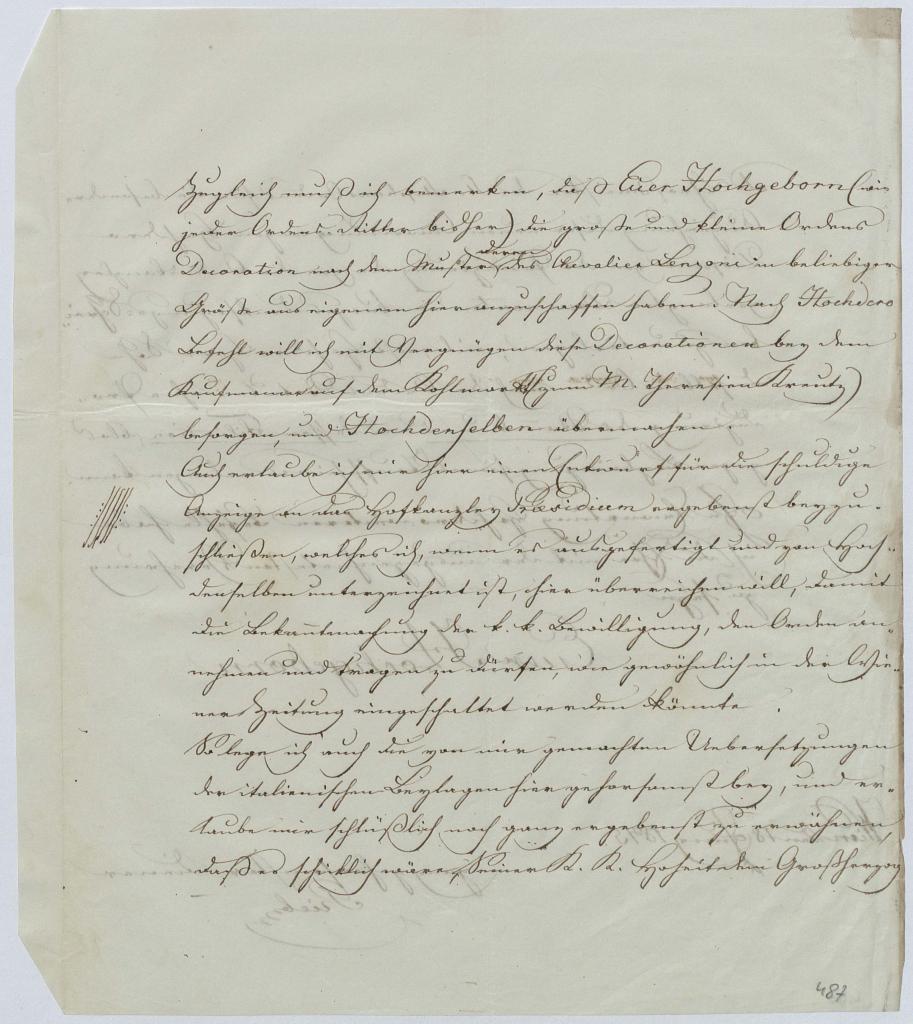 Zugleich muß ich bemerken, daß Euer Hochgeborn (wie
jeder Ordens Ritter bisher) die große und kleine Ordens
Decoration nach dem Muster deren des Chevalier Lenzoni in beliebiger
Größe aus eigenem hier anzuschaffen haben. Nach Hochdero
Befehl will ich mit Vergnügen diese Decorationen bey dem
Kaufmanne auf dem Kohlmarkt (zum M. Theresien Kreutz)
besorgen, und Hochdenselben übermachen.
Auch erlaube ich mir hier einen Entwurf für die schuldige
Anzeige an das Hofkanzley Präsidium ergebenst beyzu-
schließen, welches ich, wenn es ausgefertigt und von Hoch-
denselben unterzeichnet ist, hier überreichen will, damit
die Bekanntmachung der k. k. Bewilligung, den Orden an-
nehmen und tragen zu dürfen, wie gewöhnlich in der Wie-
ner Zeitung eingeschaltet werden könnte.
So lege ich auch die von mir gemachten Uebersetzungen
der italienischen Beylagen hier gehorsamst bey, und er-
laube mir schlüßlich noch ganz ergebenst zu erwähnen,
daß es schicklich wäre, Seiner K. K. Hoheit dem Großherzog
487